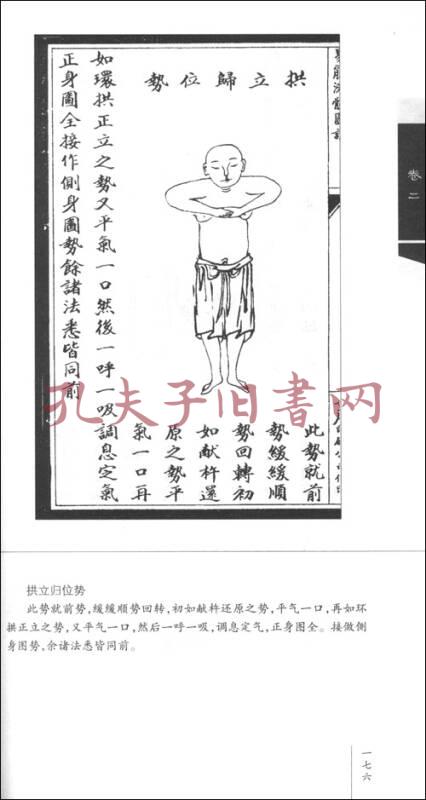 拱立歸位勢
此勢就前
勢緩緩順
勢回轉初
如献杵還
原之勢平
氣一口再
如環拱正立之勢又平氣一口然後一呼一吸調息定氣
正身圖全接作側身圖勢餘諸法悉皆同前
卷二
孔夫子旧书网
拱立归位势
此势就前势,缓缓顺势回转,初如献杵还原之势,平气一口,再如环
拱正立之势,又平气一口,然后一呼一吸,调息定气,正身图全。接做侧
身图势,余诸法悉皆同前。
一七六